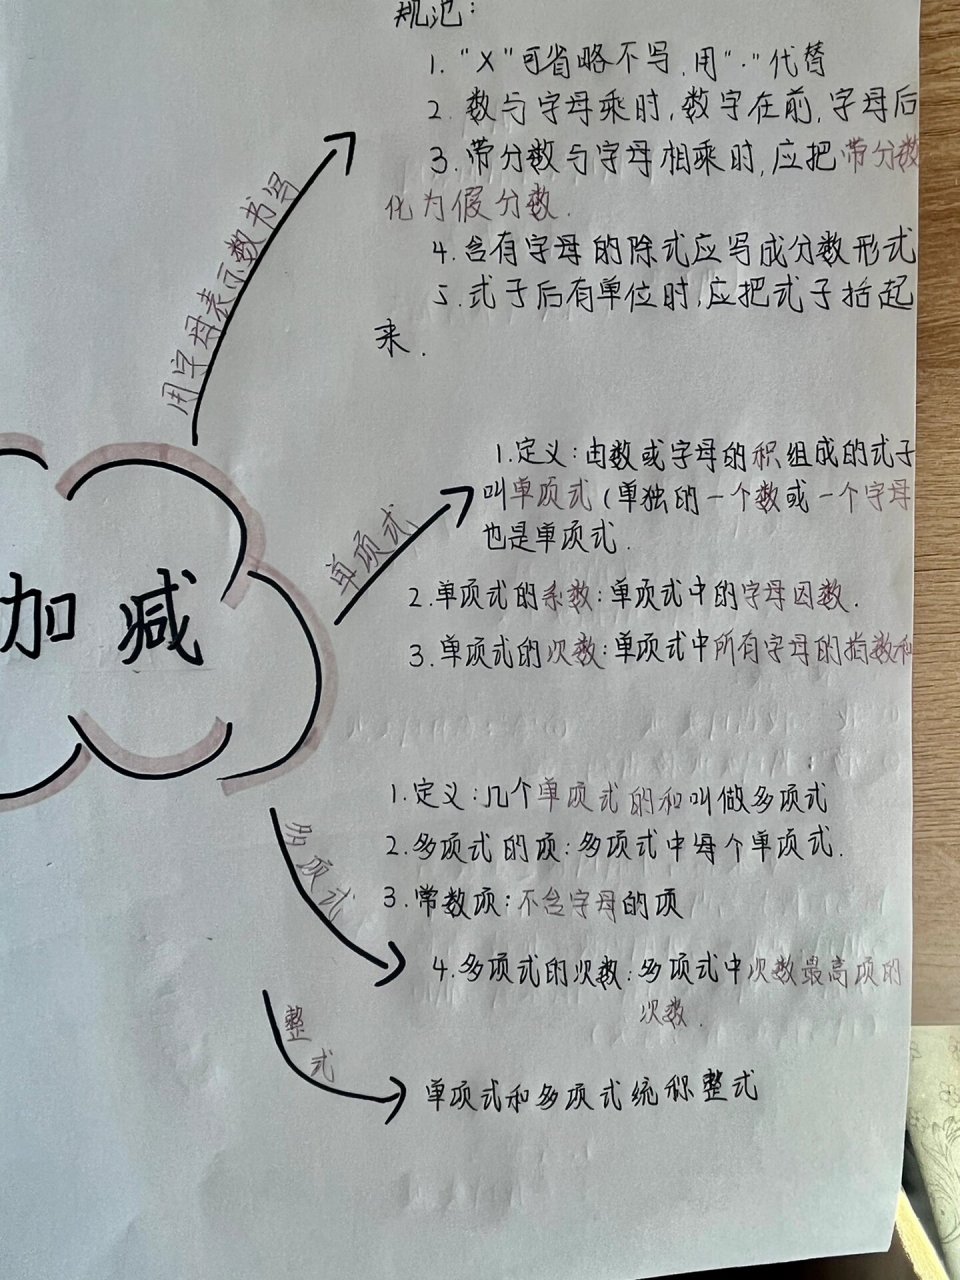 规范：
1. "X"可省略不写，用"·"代替
2. 数与字母乘时，数字在前，字母后
3. 带分数与字母相乘时，应把带分数
化为假分数.
4. 含有字母的除式应写成分数形式
5. 式子后有单位时，应把式子括起
来.
用字母表示数书写
1.定义：由数或字母的积组成的式子
叫单项式（单独的一个数或一个字母
也是单项式.
单项式
2.单项式的系数：单项式中的字母因数.
3.单项式的次数：单项式中所有字母的指数和
加减
1.定义：几个单项式的和叫做多项式
2.多项式的项：多项式中每个单项式.
3.常数项：不含字母的项
多项式
4.多项式的次数：多项式中次数最高项的
次数.
整式
单项式和多项式统称整式